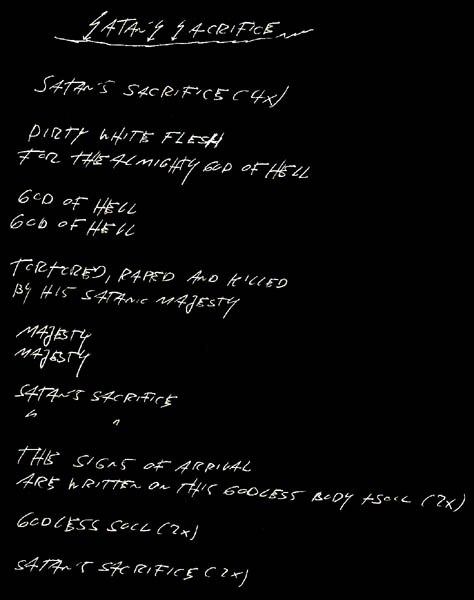 SATAN'S SACRIFICE
SATAN'S SACRIFICE (4x)
DIRTY WHITE FLESH
FOR THE ALMIGHTY GOD OF HELL
GOD OF HELL
GOD OF HELL
TORTURED, RAPED AND KILLED
BY HIS SATANIC MAJESTY
MAJESTY
MAJESTY
SATAN'S SACRIFICE
" "
THE SIGNS OF ARRIVAL
ARE WRITTEN ON THIS GODLESS BODY + SOUL (2x)
GODLESS SOUL (2x)
SATAN'S SACRIFICE (2x)